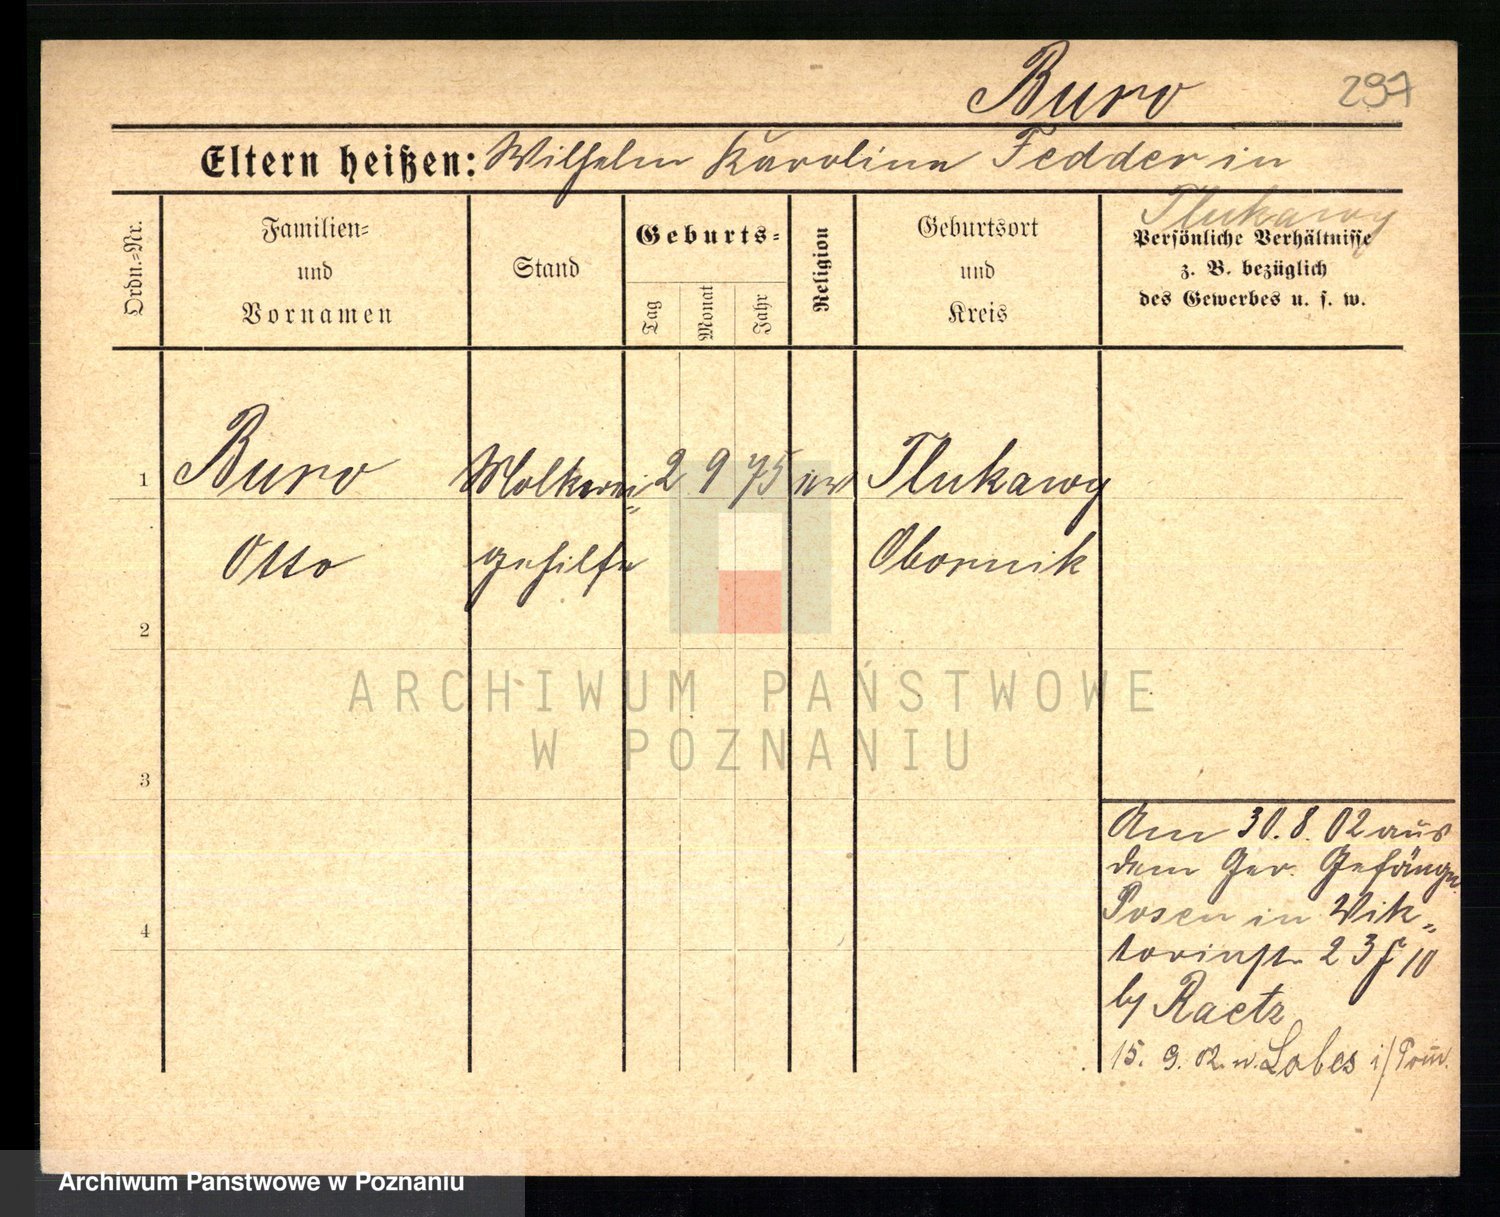 Buro 297
Eltern heißen: Wilhelm Karoline Fedder in
Tlukawy
Ordn.-Nr.
Familien-
und
Vornamen
Stand
Geburts-
Tag
Monat
Jahr
Religion
Geburtsort
und
Kreis
Persönliche Verhältnisse
z. B. bezüglich
des Gewerbes u. s. w.
1 Buro Molkerei- 2 9 75 ev Tlukawy
Otto gehilfe Obornik
2
3
4
Am 30.8.02 aus
dem Ger. Gefängn.
Posen in Vik-
toriastr 23 J 10
by Raetz
15. 9. 02 n. Labes i/Pom.
ARCHIWUM PAŃSTWOWE
W POZNANIU
Archiwum Państwowe w Poznaniu